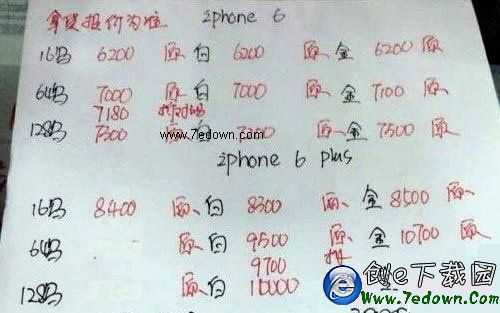 拿货报价为准 iphone 6
16G 6200 原 白 6200 原 金 6200 原
64G 7000 原 白 7000 原 金 7100 原
7180
128G 7300 原 白 原 金 7500 原
www.7edown.com
iphone 6 plus
16G 8400 原、白 8300 原、金 8500 原
64G 原、白 9500 原、金 10700 原
9700
128G 原、白 10000
创e下载园
www.7edown.com